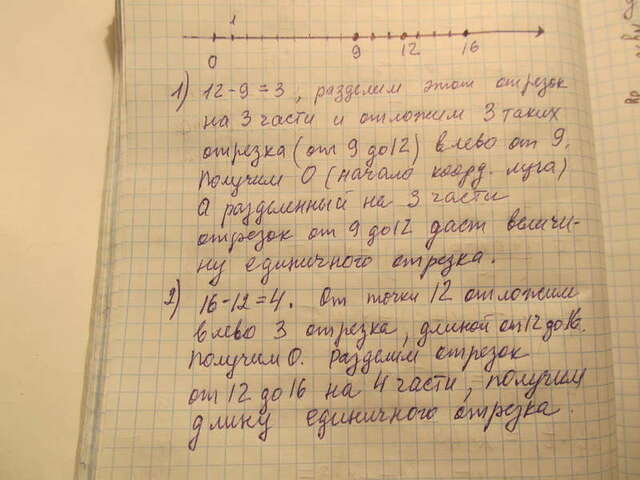 1
0 9 12 16
1) 12-9=3, разделим этот отрезок
на 3 части и отложим 3 таких
отрезка (от 9 до 12) влево от 9.
Получим 0 (начало коорд. луча)
а разделенный на 3 части
отрезок от 9 до 12 даст величи-
ну единичного отрезка.
2) 16-12=4. От точки 12 отложим
влево 3 отрезка, длиной от 12 до 16.
Получим 0. Разделим отрезок
от 12 до 16 на 4 части, получим
длину единичного отрезка.